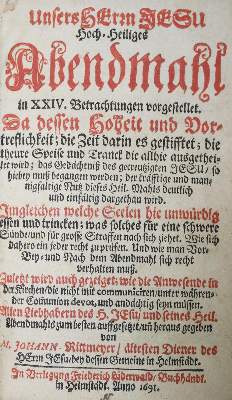 Unsers HErrn JESU
Hoch-Heiliges
Abendmahl
in XXIV. Betrachtungen vorgestellet.
Da dessen Hoheit und Vor-
treflichkeit; die Zeit darin es gestifftet; die
theure Speise und Tranck die allhie ausgethei-
let wird; das Gedächtniß des gecreutzigten JESU / so
hiebey muß begangen werden; der kräfftige und man-
nigfaltige Nutz dieses Heil. Mahls deutlich
und einfältig dargethan wird.
Imgleichen welche Seelen hie unwürdig
essen und trincken; was solches für eine schwere
Sünde und für grosse Straffen nach sich ziehet. Wie sich
dahero ein jeder recht zu prüfen. Und wie man Vor-
Bey- und Nach dem Abendmahl sich recht
verhalten muß.
Zuletzt wird auch gezeiget: wie die Anwesende in
der Kirchen die nicht mit communiciren / unter währen-
der Communion devot, und andächtig seyn müssen.
Allen Liebhabern des H. JEsu / und seines Heil.
Abendmahls zum besten auffgesetzt / uñ heraus gegeben
von
M. JOHANN. Rittmeyer / ältesten Diener des
HErrn JEsu / bey dessen Gemeine in Helmstädt.
In Verlegung Friederich Lüderwald / Buchhändl.
in Helmstädt. Anno 1691.